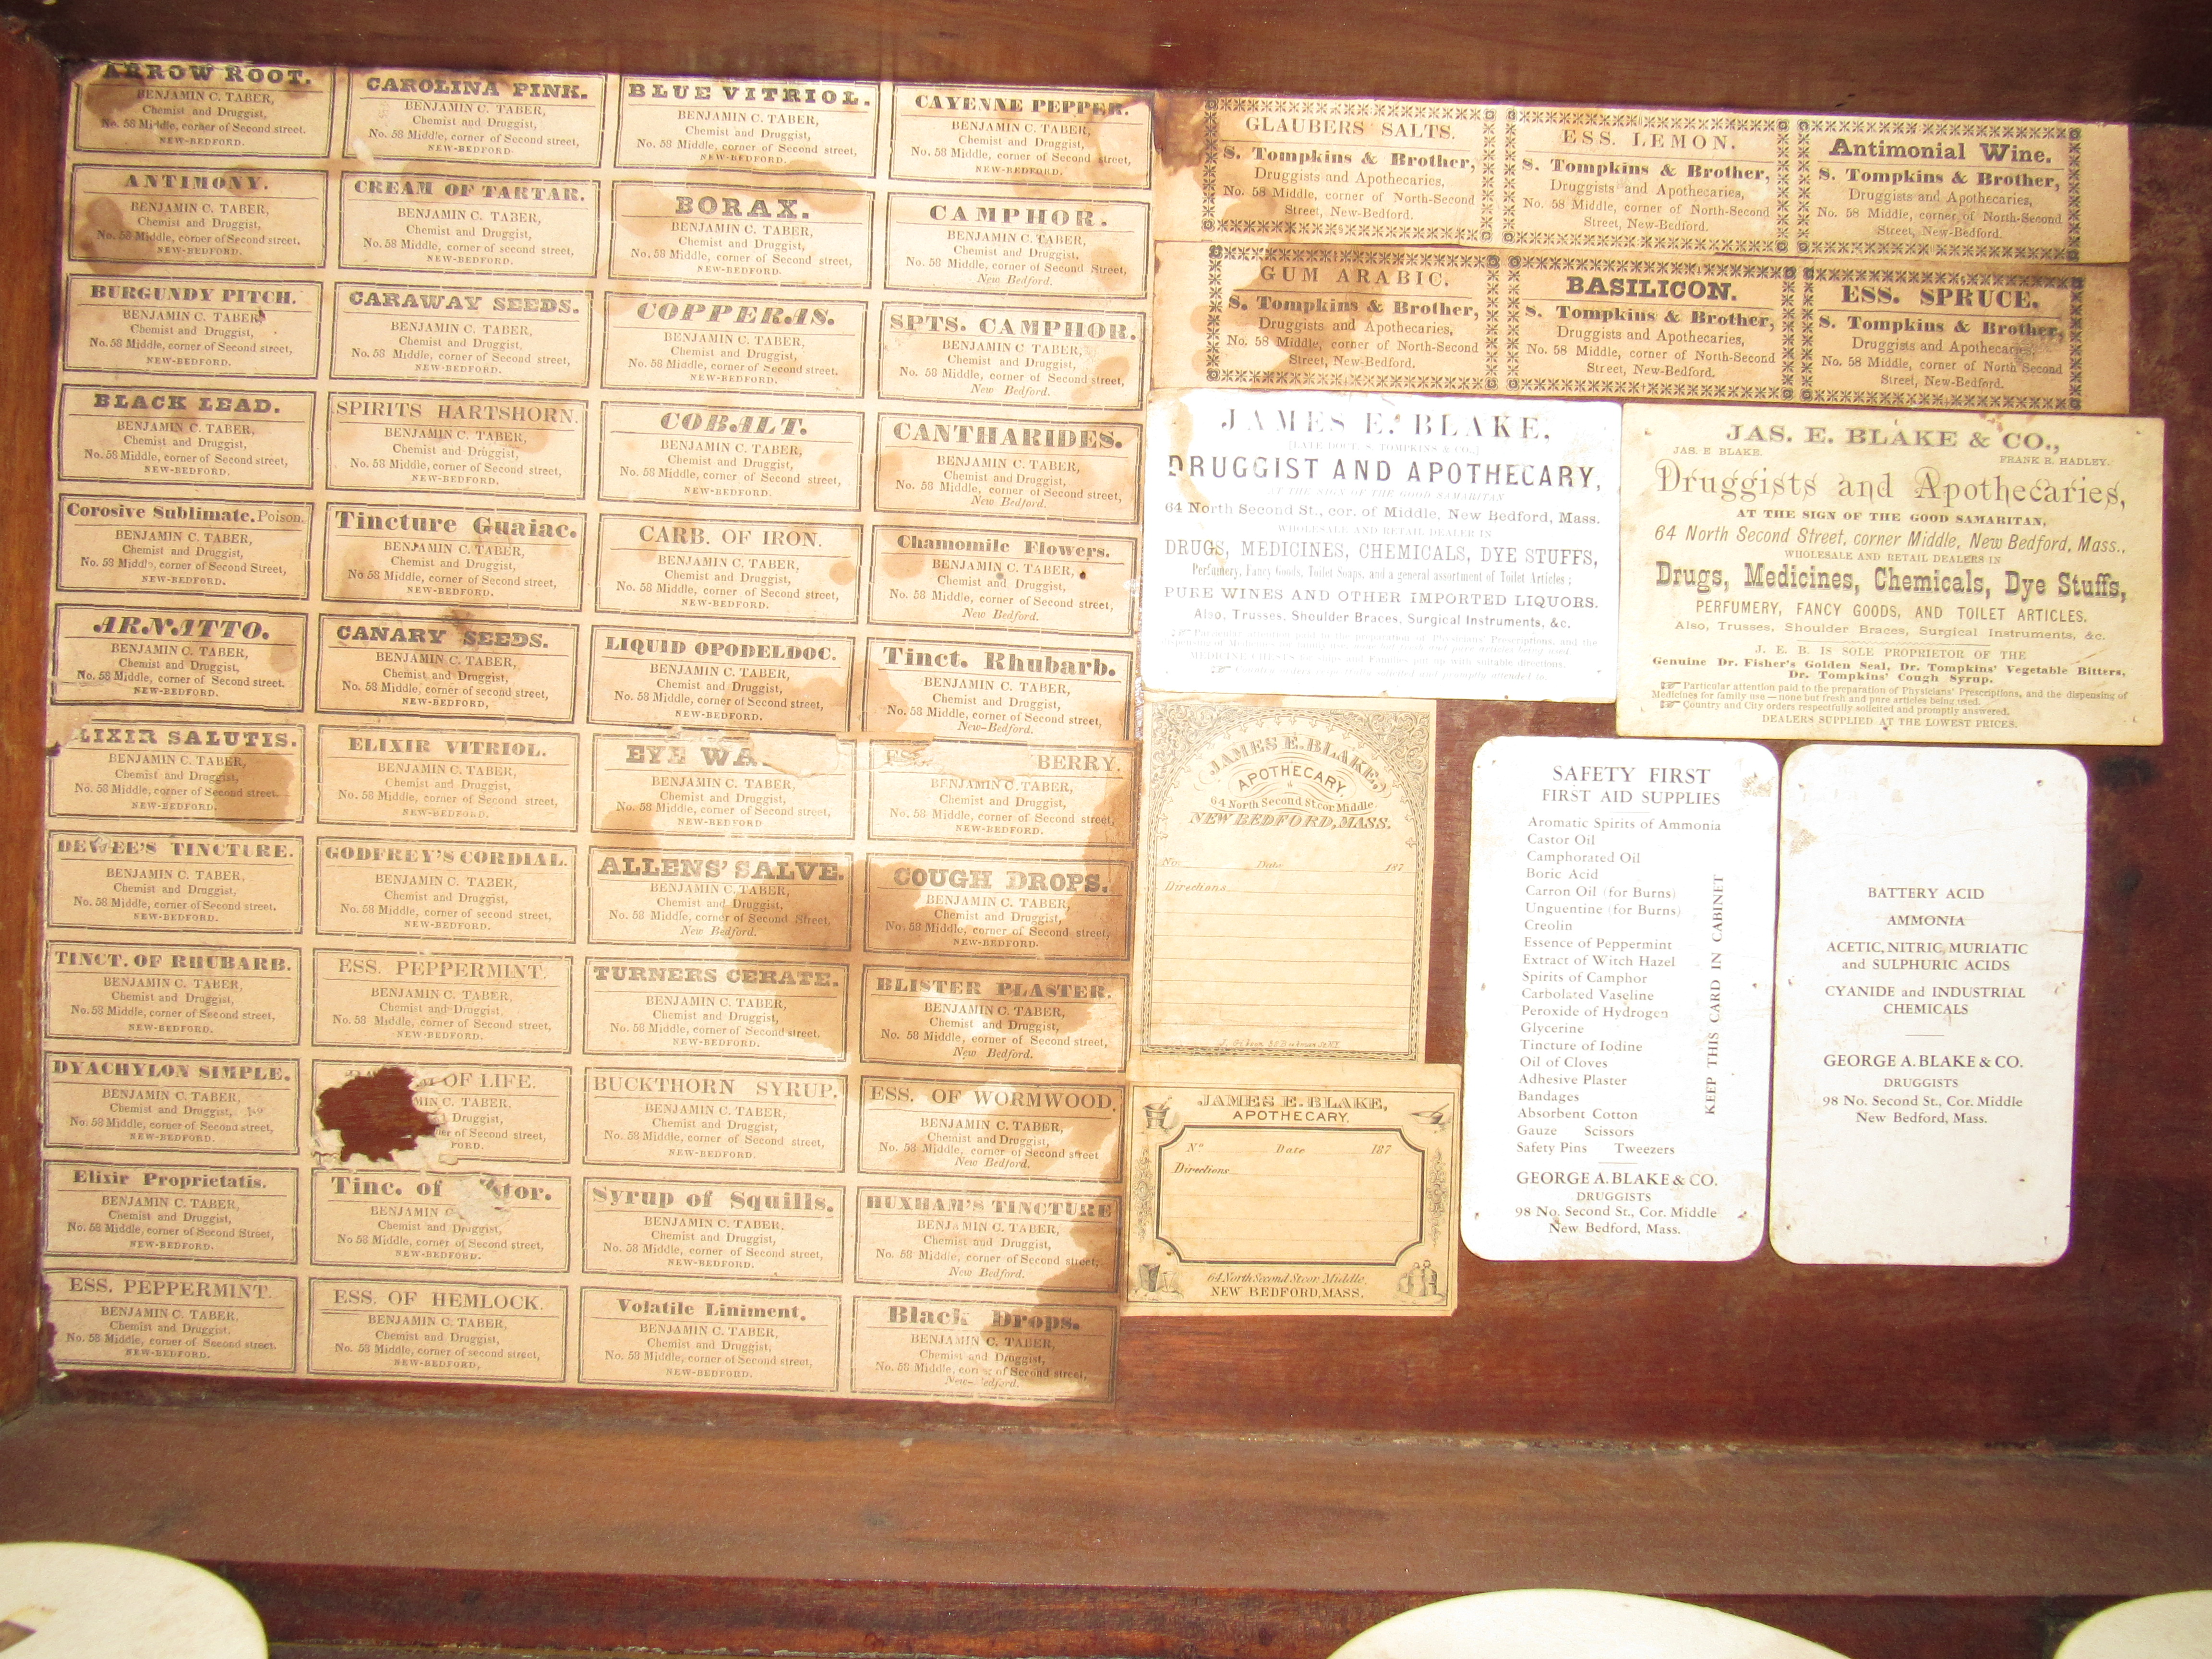 ARROW ROOT.
BENJAMIN C. TABER,
Chemist and Druggist,
No. 58 Middle, corner of Second street.
NEW-BEDFORD.
ANTIMONY.
BENJAMIN C. TABER,
Chemist and Druggist,
No. 58 Middle, corner of Second street,
NEW-BEDFORD.
BURGUNDY PITCH.
BENJAMIN C. TABER,
Chemist and Druggist,
No. 58 Middle, corner of Second street,
NEW-BEDFORD.
BLACK LEAD.
BENJAMIN C. TABER,
Chemist and Druggist,
No. 58 Middle, corner of Second street,
NEW-BEDFORD.
Corosive Sublimate. Poison.
BENJAMIN C. TABER,
Chemist and Druggist,
No. 58 Middle, corner of Second Street,
NEW-BEDFORD.
ARNATTO.
BENJAMIN C. TABER,
Chemist and Druggist,
No. 58 Middle, corner of Second street.
NEW-BEDFORD.
LIXIR SALUTIS.
BENJAMIN C. TABER,
Chemist and Druggist,
No. 58 Middle, corner of Second street.
NEW-BEDFORD.
DEWEE'S TINCTURE.
BENJAMIN C. TABER,
Chemist and Druggist,
No. 58 Middle, corner of Second street.
NEW-BEDFORD.
TINCT. OF RHUBARB.
BENJAMIN C. TABER,
Chemist and Druggist,
No. 58 Middle, corner of Second street,
NEW-BEDFORD.
DYACHYLON SIMPLE.
BENJAMIN C. TABER,
Chemist and Druggist,
No. 58 Middle, corner of Second street,
NEW-BEDFORD.
Elixir Proprietatis.
BENJAMIN C. TABER,
Chemist and Druggist,
No. 58 Middle, corner of Second Street,
NEW-BEDFORD.
ESS. PEPPERMINT.
BENJAMIN C. TABER,
Chemist and Druggist,
No. 58 Middle, corner of Second street.
NEW-BEDFORD.
CAROLINA PINK.
BENJAMIN C. TABER,
Chemist and Druggist,
No. 58 Middle, corner of Second street,
NEW-BEDFORD.
CREAM OF TARTAR.
BENJAMIN C. TABER,
Chemist and Druggist,
No. 58 Middle, corner of second street,
NEW-BEDFORD.
CARAWAY SEEDS.
BENJAMIN C. TABER,
Chemist and Druggist,
No. 58 Middle, corner of Second street,
NEW-BEDFORD.
SPIRITS HARTSHORN.
BENJAMIN C. TABER,
Chemist and Druggist,
No. 58 Middle, corner of Second street,
NEW-BEDFORD.
Tincture Guaiac.
BENJAMIN C. TABER,
Chemist and Druggist,
No 58 Middle, corner of Second street,
NEW-BEDFORD.
CANARY SEEDS.
BENJAMIN C. TABER,
Chemist and Druggist,
No. 58 Middle, corner of second street,
NEW-BEDFORD,
ELIXIR VITRIOL.
BENJAMIN C. TABER,
Chemist and Druggist,
No. 58 Middle, corner of Second street,
NEW-BEDFORD.
GODFREY'S CORDIAL.
BENJAMIN C. TABER,
Chemist and Druggist,
No. 58 Middle, corner of second street,
NEW-BEDFORD.
ESS. PEPPERMINT.
BENJAMIN C. TABER,
Chemist and Druggist,
No. 58 Middle, corner of Second street,
NEW-BEDFORD.
OF LIFE.
MIN C. TABER,
Druggist,
of Second street,
FORD.
Tinc. of
BENJAMIN
Chemist and Druggist,
No 58 Middle, corner of Second street,
NEW-BEDFORD.
ESS. OF HEMLOCK.
BENJAMIN C. TABER,
Chemist and Druggist,
No. 58 Middle, corner of second street,
NEW-BEDFORD,
BLUE VITRIOL.
BENJAMIN C. TABER,
Chemist and Druggist,
No. 58 Middle, corner of Second street,
NEW-BEDFORD.
BORAX.
BENJAMIN C. TABER,
Chemist and Druggist,
No. 58 Middle, corner of Second street,
NEW-BEDFORD.
COPPERAS.
BENJAMIN C. TABER,
Chemist and Druggist,
No. 58 Middle, corner of Second street,
NEW-BEDFORD.
COBALT.
BENJAMIN C. TABER,
Chemist and Druggist,
No. 58 Middle, corner of Second street,
NEW-BEDFORD.
CARB. OF IRON.
BENJAMIN C. TABER,
Chemist and Druggist,
No. 58 Middle, corner of Second street,
NEW-BEDFORD.
LIQUID OPODELDOC.
BENJAMIN C. TABER,
Chemist and Druggist,
No. 58 Middle, corner of Second street,
NEW-BEDFORD.
EYE WA
BENJAMIN C. TABER,
Chemist and Druggist,
No. 58 Middle, corner of Second street,
NEW-BEDFORD
ALLENS' SALVE.
BENJAMIN C. TABER,
Chemist and Druggist,
No. 58 Middle, corner of Second Street,
New Bedford.
TURNERS CERATE.
BENJAMIN C. TABER,
Chemist and Druggist,
No. 58 Middle, corner of Second street.
NEW-BEDFORD.
BUCKTHORN SYRUP.
BENJAMIN C. TABER,
Chemist and Druggist,
No. 58 Middle, corner of Second street,
NEW-BEDFORD.
Syrup of Squills.
BENJAMIN C. TABER,
Chemist and Druggist,
No. 58 Middle, corner of Second street,
NEW-BEDFORD.
Volatile Liniment.
BENJAMIN C. TABER,
Chemist and Druggist,
No. 58 Middle, corner of Second street,
NEW-BEDFORD.
CAYENNE PEPPER.
BENJAMIN C. TABER,
Chemist and Druggist,
No. 58 Middle, corner of Second street,
NEW-BEDFORD.
CAMPHOR.
BENJAMIN C. TABER,
Chemist and Druggist,
No. 58 Middle, corner of Second Street,
New Bedford.
SPTS. CAMPHOR.
BENJAMIN C. TABER,
Chemist and Druggist,
No. 58 Middle, corner of Second street,
New Bedford.
CANTHARIDES.
BENJAMIN C. TABER,
Chemist and Druggist,
No. 58 Middle, corner of Second street,
New Bedford.
Chamomile Flowers.
BENJAMIN C. TABER,
Chemist and Druggist,
No. 58 Middle, corner of Second street,
New Bedford.
Tinct. Rhubarb.
BENJAMIN C. TABER,
Chemist and Druggist,
No. 58 Middle, corner of Second street,
New-Bedford.
BERRY.
BENJAMIN C. TABER,
Chemist and Druggist,
No. 58 Middle, corner of Second street,
NEW-BEDFORD.
COUGH DROPS.
BENJAMIN C. TABER,
Chemist and Druggist,
No. 58 Middle, corner of Second street,
NEW-BEDFORD.
BLISTER PLASTER.
BENJAMIN C. TABER,
Chemist and Druggist,
No. 58 Middle, corner of Second street,
New Bedford.
ESS. OF WORMWOOD.
BENJAMIN C. TABER,
Chemist and Druggist,
No. 58 Middle, corner of Second street
New Bedford.
HUXHAM'S TINCTURE
BENJAMIN C. TABER,
Chemist and Druggist,
No. 58 Middle, corner of Second street,
New Bedford.
Black Drops.
BENJAMIN C. TABER,
Chemist and Druggist,
No. 58 Middle, of Second street,
New- edford.
GLAUBERS SALTS.
S. Tompkins & Brother,
Druggists and Apothecaries,
No. 58 Middle, corner of North-Second
Street, New-Bedford.
ESS. LEMON.
S. Tompkins & Brother,
Druggists and Apothecaries,
No. 58 Middle, corner of North-Second
Street, New-Bedford.
Antimonial Wine.
S. Tompkins & Brother,
Druggists and Apothecaries,
No. 58 Middle, corner of North-Second
Street, New-Bedford.
GUM ARABIC.
S. Tompkins & Brother,
Druggists and Apothecaries,
No. 58 Middle, corner of North-Second
Street, New-Bedford.
BASILICON.
S. Tompkins & Brother,
Druggists and Apothecaries,
No. 58 Middle, corner of North-Second
Street, New-Bedford.
ESS. SPRUCE.
S. Tompkins & Brother,
Druggists and Apothecaries,
No. 58 Middle, corner of North Second
Street, New-Bedford.
JAMES E. BLAKE,
[LATE DOCT. S. TOMPKINS & CO.,]
DRUGGIST AND APOTHECARY,
AT THE SIGN OF THE GOOD SAMARITAN
64 North Second St., cor. of Middle, New Bedford, Mass.
WHOLESALE AND RETAIL DEALER IN
DRUGS, MEDICINES, CHEMICALS, DYE STUFFS,
Perfumery, Fancy Goods, Toilet Soaps, and a general assortment of Toilet Articles;
PURE WINES AND OTHER IMPORTED LIQUORS.
Also, Trusses, Shoulder Braces, Surgical Instruments, &c.
Particular attention paid to the preparation of Physicians' Prescriptions, and the
MEDICINE CHESTS for Ships and Families put up with suitable directions.
JAS. E. BLAKE & CO.,
JAS. E BLAKE. FRANK R. HADLEY.
Druggists and Apothecaries,
AT THE SIGN OF THE GOOD SAMARITAN,
64 North Second Street, corner Middle, New Bedford, Mass.,
WHOLESALE AND RETAIL DEALERS IN
Drugs, Medicines, Chemicals, Dye Stuffs,
PERFUMERY, FANCY GOODS, AND TOILET ARTICLES.
Also, Trusses, Shoulder Braces, Surgical Instruments, &c.
J. E. B. IS SOLE PROPRIETOR OF THE
Genuine Dr. Fisher's Golden Seal, Dr. Tompkins' Vegetable Bitters,
Dr. Tompkins' Cough Syrup.
Particular attention paid to the preparation of Physicians' Prescriptions, and the dispensing of
Medicines for family use — none but fresh and pure articles being used.
Country and City orders respectfully solicited and promptly answered.
DEALERS SUPPLIED AT THE LOWEST PRICES.
JAMES E. BLAKE,
APOTHECARY,
64 North Second St. cor. Middle
NEW BEDFORD, MASS.
No. Date 187
Directions
JAMES E. BLAKE,
APOTHECARY,
No Date 187
Directions
64 North Second St. cor. Middle,
NEW BEDFORD, MASS.
SAFETY FIRST
FIRST AID SUPPLIES
Aromatic Spirits of Ammonia
Castor Oil
Camphorated Oil
Boric Acid
Carron Oil (for Burns)
Unguentine (for Burns)
Creolin
Essence of Peppermint
Extract of Witch Hazel
Spirits of Camphor
Carbolated Vaseline
Peroxide of Hydrogen
Glycerine
Tincture of Iodine
Oil of Cloves
Adhesive Plaster
Bandages
Absorbent Cotton
Gauze Scissors
Safety Pins Tweezers
KEEP THIS CARD IN CABINET
GEORGE A. BLAKE & CO.
DRUGGISTS
98 No. Second St., Cor. Middle
New Bedford, Mass.
BATTERY ACID
AMMONIA
ACETIC, NITRIC, MURIATIC
and SULPHURIC ACIDS
CYANIDE and INDUSTRIAL
CHEMICALS
GEORGE A. BLAKE & CO.
DRUGGISTS
98 No. Second St., Cor. Middle
New Bedford, Mass.